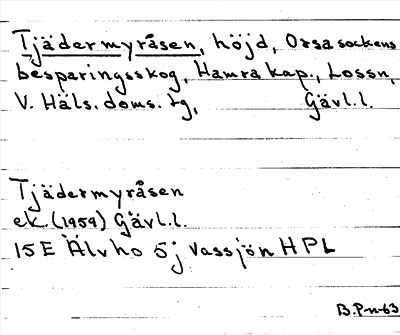 Tjädermyråsen, höjd, Orsa sockens
besparingsskog, Hamra kap., Lossn,
V. Häls. doms. tg, Gävl.l.
Tjädermyråsen
ek. (1959) Gävl.l.
15E Älvho 5j Vassjön HPL
B.P-n-63